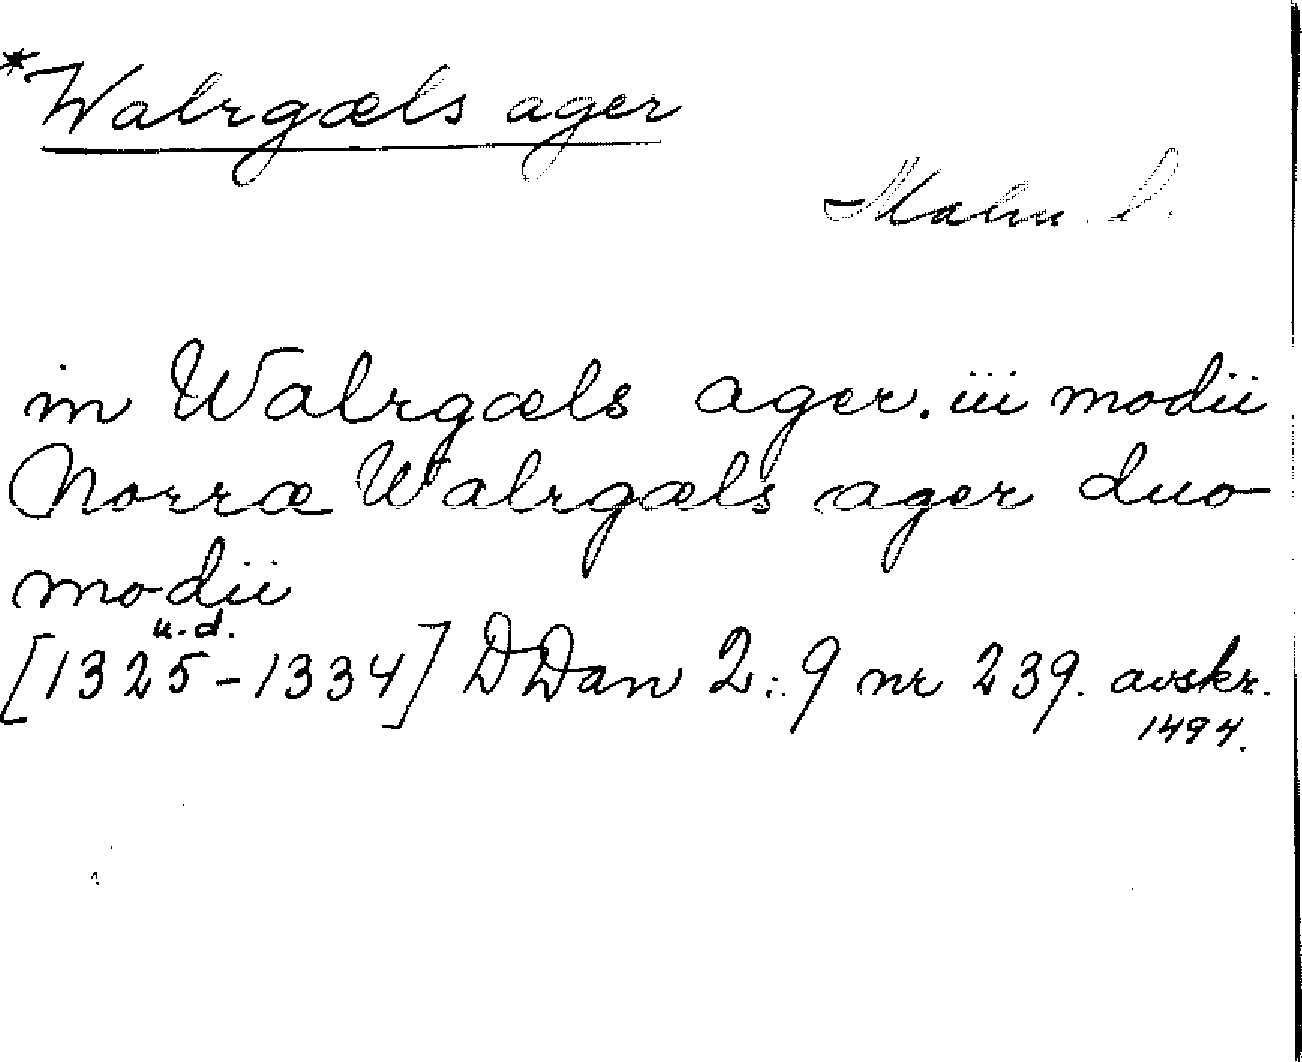 *Walrgæls ager
Malm. l.
in Walrgæls ager. iii modii
Norræ Walrgæls ager duo
modii
u.d.
[1325-1334] DDan 2:9 nr 239. avskr.
1494.